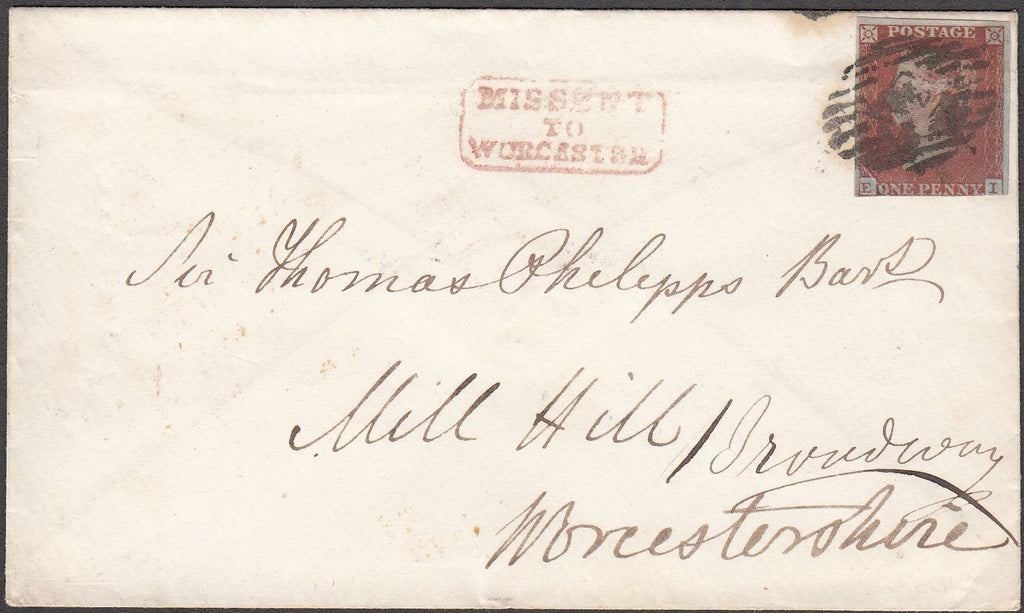 POSTAGE
MISSENT
TO
WORCASTER
E ONE PENNY I
Sir Thomas Phelepps Bart
Mill Hill / Broadway
Worcestershire